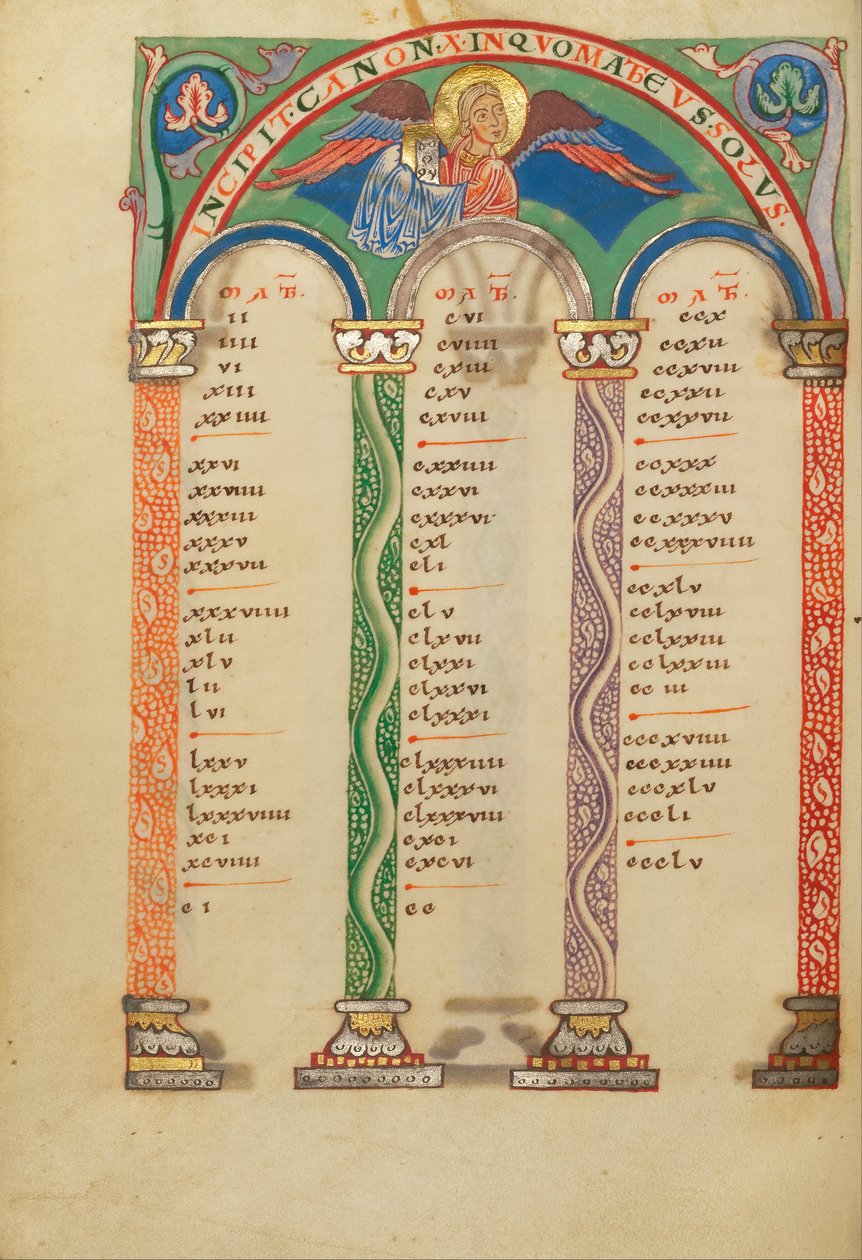 INCIPIT·CANON·X·INQVOMATHEVS·SOLVS.
MATH.
ii
iiii
vi
xiii
xxiiii
xxvi
xxviiii
xxxiii
xxxv
xxxvii
xxxviiii
xlii
xlv
lii
lvi
lxxv
lxxxi
lxxxviiii
xci
xcviiii
ci
MATH.
cvi
cviiii
cxiii
cxv
cxviii
cxxiiii
cxxvi
cxxxvi
cxl
cli
clv
clxvii
clxxi
clxxvi
clxxxi
clxxxiiii
clxxxvi
clxxxviii
cxci
cxcvi
cc
MATH.
ccx
ccxii
ccxviii
ccxxii
ccxxvii
ccxxx
ccxxxiii
ccxxxv
ccxxxviiii
ccxlv
cclxviii
cclxxiii
cclxxiii
cc iii
cccxviiii
cccxxiiii
cccxlv
cccli
ccclv